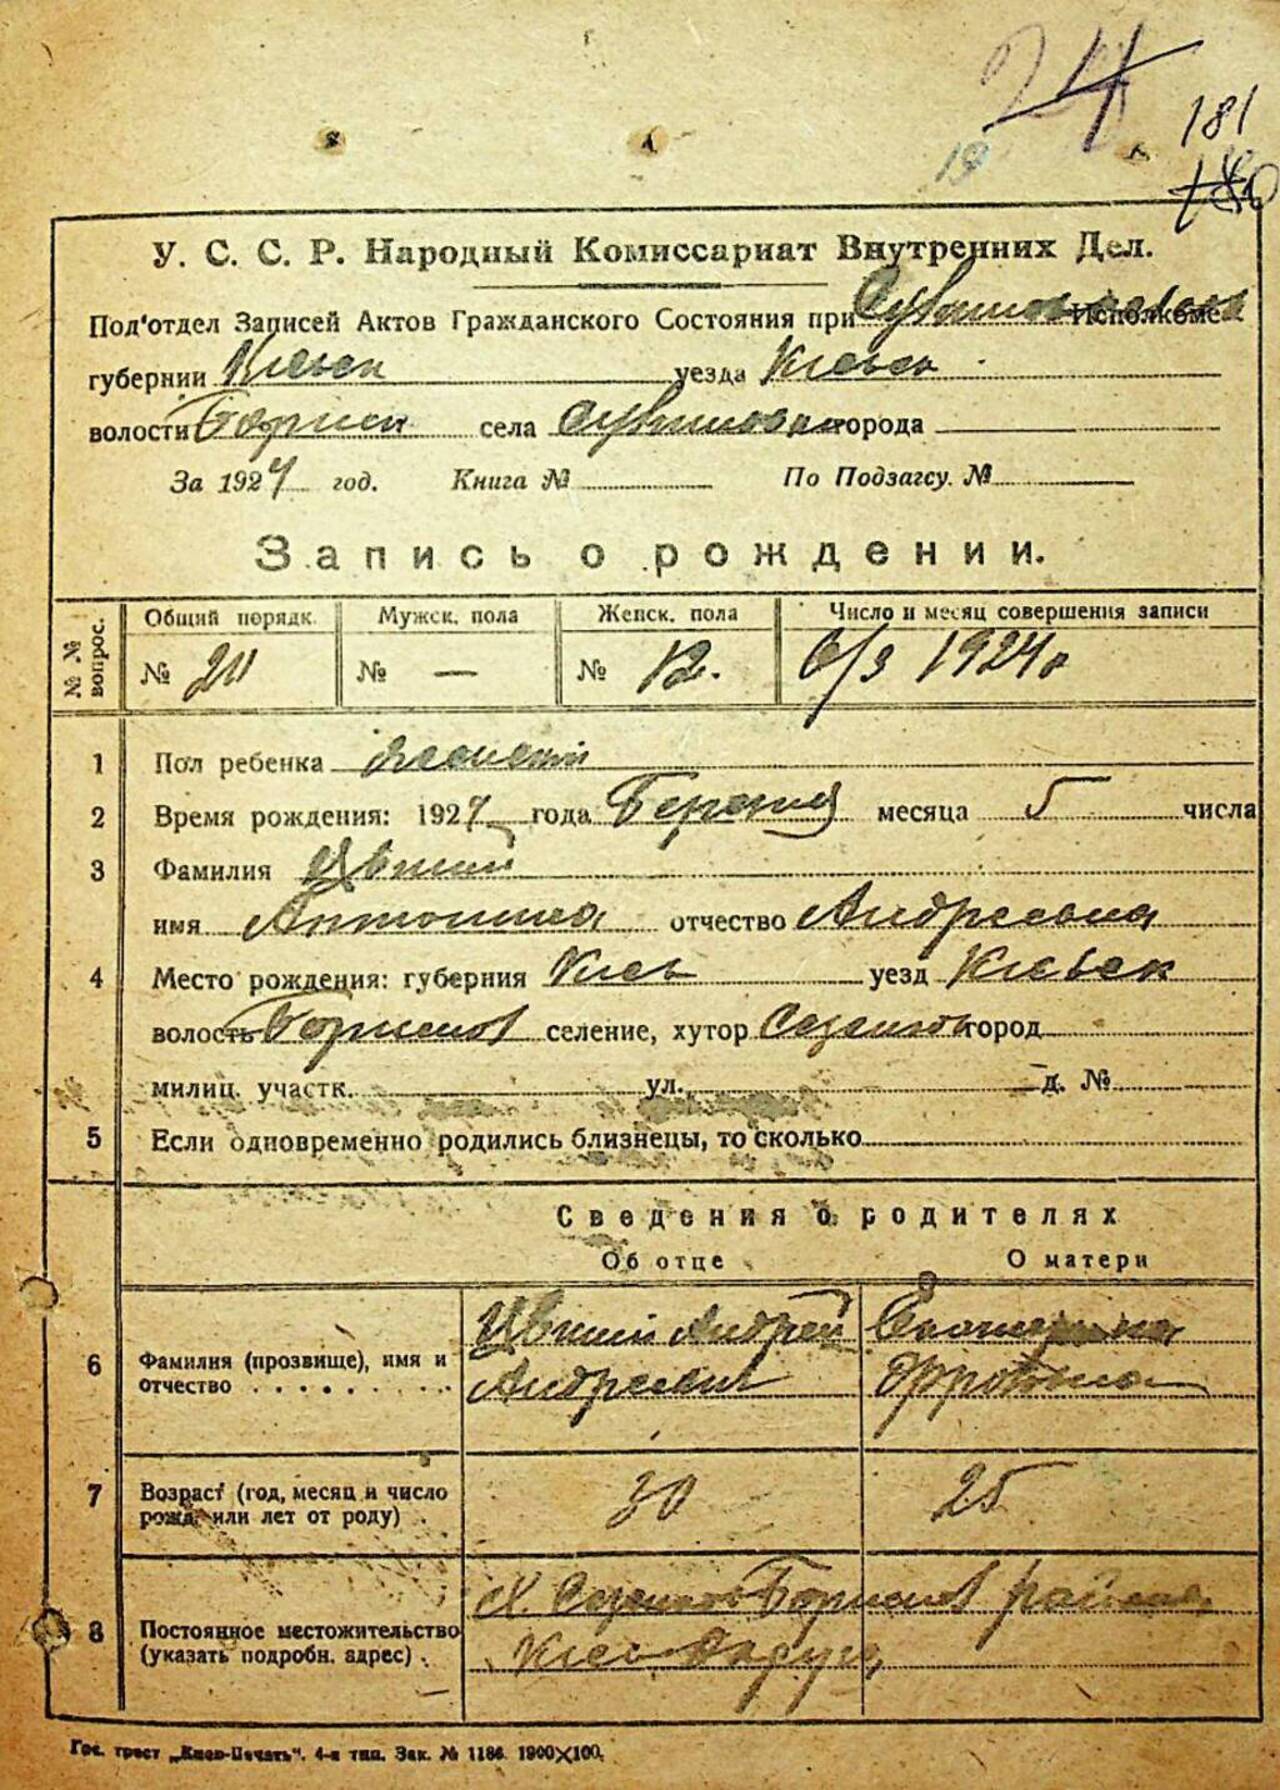 24
19
181
180
У. С. С. Р. Народный Комиссариат Внутренних Дел.
Под'отдел Записей Актов Гражданского Состояния при Исполкоме
губернии Киевск уезда Киевск
волости Борисп села города
За 1924 год. Книга № По Подзагсу. №
Запись о рождении.
№ № вопрос.
Общий порядк. Мужск. пола Женск. пола Число и месяц совершения записи
№ № — № 12. 6/3 1924 г
1 Пол ребенка
2 Время рождения: 1924 года месяца 5 числа
3 Фамилия
имя Антонина отчество Андреевна
4 Место рождения: губерния Киев уезд Киевск
волость селение, хутор город
милиц. участк. ул. д. №
5 Если одновременно родились близнецы, то сколько
Сведения о родителях
Об отце О матери
6 Фамилия (прозвище), имя и отчество Андрей Андреевич
7 Возраст (год, месяц и число рожд. или лет от роду) 30 25
8 Постоянное местожительство (указать подробн. адрес) Х.
Гос. трест „Киев-Печать“. 4-я тип. Зак. № 1186. 1900×100.